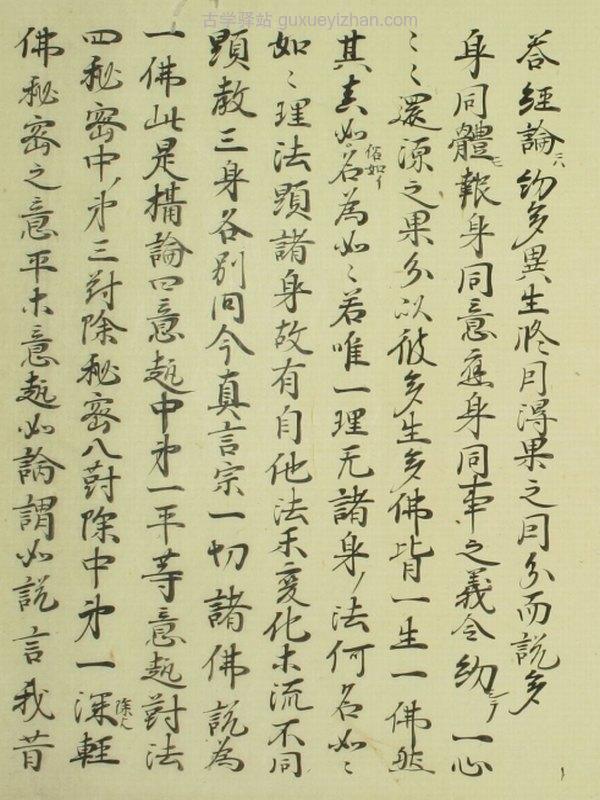 古学驿站 guxueyizhan.com
答經論約多異生修因得果之因分而說多
身同體報身同意應身同事之義今約一心
〻〻還源之果分以彼多生多佛皆一生一佛然
其真如名為如〻若唯一理无諸身法何名如〻
如〻理法顕諸身故有自他法禾變化木流不同
顕教三身各別同今真言宗一切諸佛説為
一佛此是攝論四意趣中第一平等意趣對法
四秘密中第三對除秘密八對除中第一深輕
佛秘密之意平木意趣如論謂如説言我昔